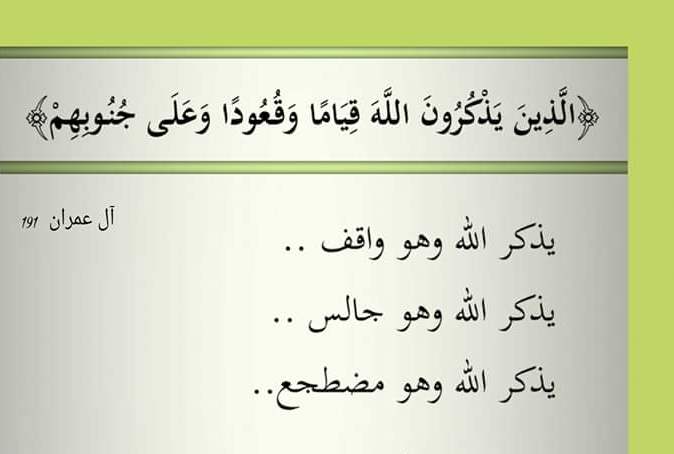 ﴿الَّذِينَ يَذْكُرُونَ اللَّهَ قِيَامًا وَقُعُودًا وَعَلَى جُنُوبِهِمْ﴾
آل عمران 191
يذكر الله وهو واقف ..
يذكر الله وهو جالس ..
يذكر الله وهو مضطجع..